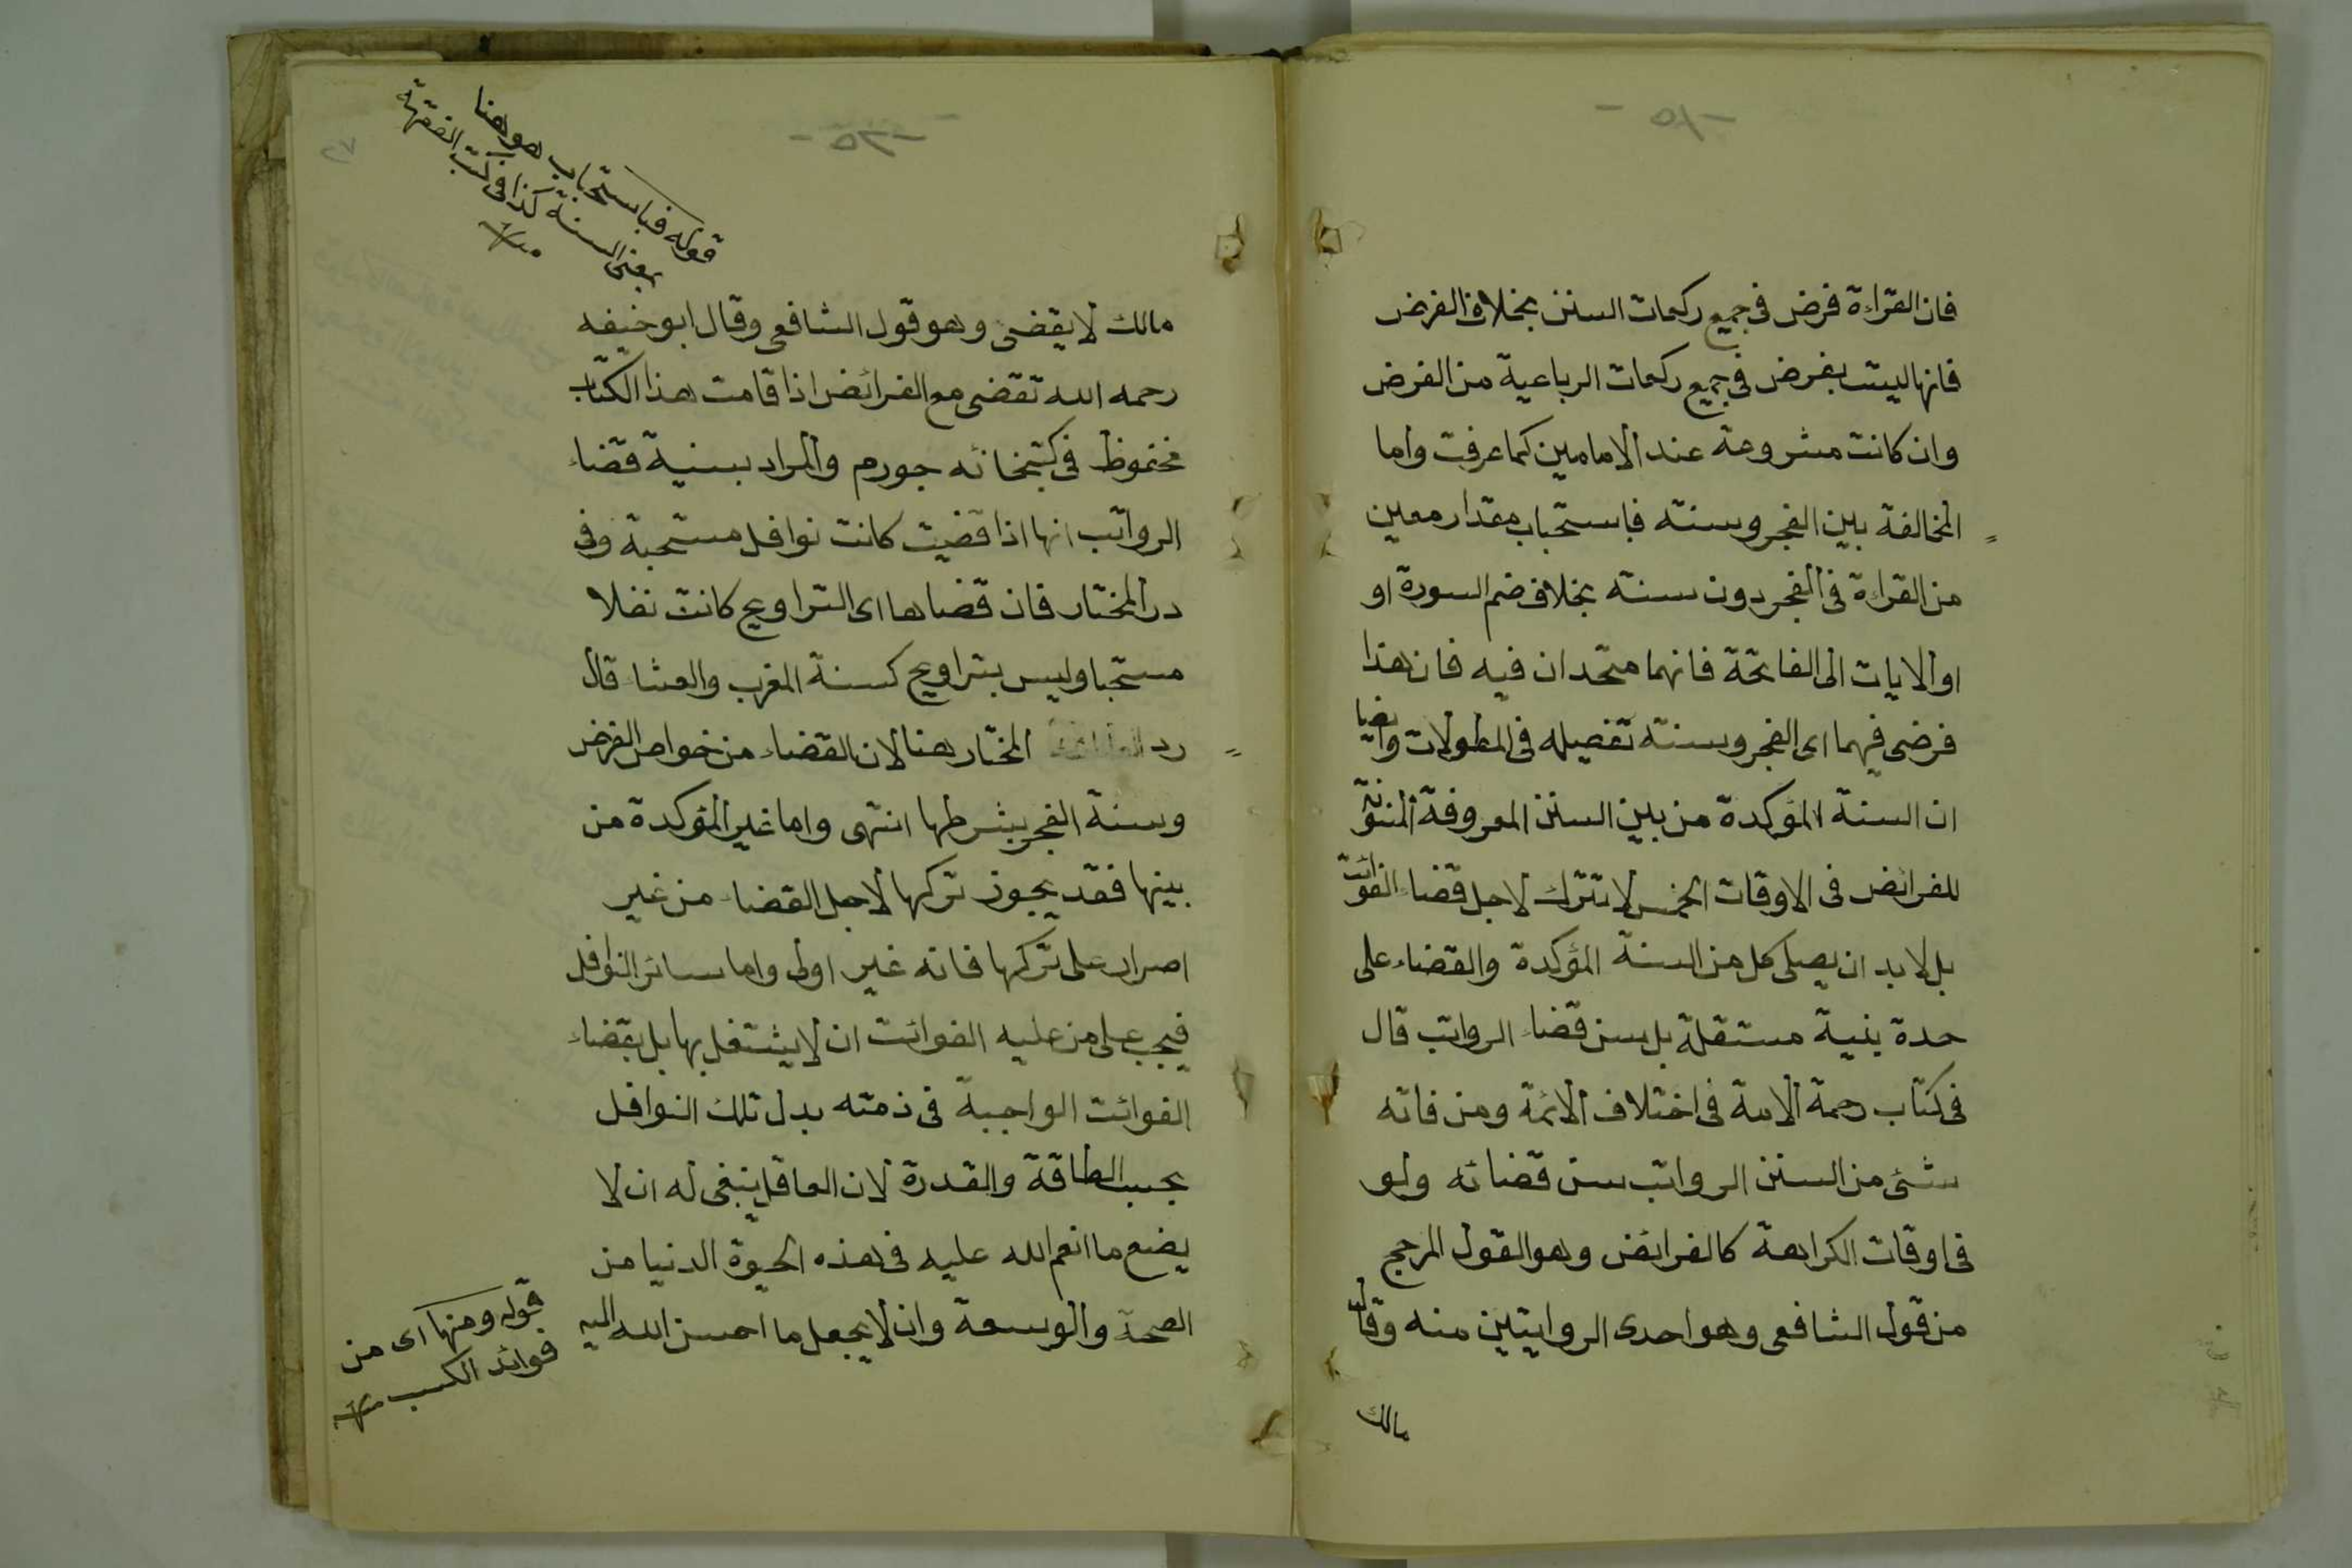 فان القراءة فرض فى جميع ركعات السنن بخلاف الفرض
فانها ليست بفرض فى جميع ركعات الرباعية من الفرض
وان كانت مشروعة عند الامامين كما عرفت واما
المخالفة بين الفجر وسنته فباستحباب مقدار معين
من القراءة فى الفجر دون سنته بخلاف ضم السورة او
او الايات الى الفاتحة فانهما متحدان فيه فان هذا
فرضى فيهما اى الفجر وسنته تفصيله فى المطولات وايضا
ان السنة المؤكدة من بين السنن المعروفة المسنونة
للفرائض فى الاوقات الخمس لا تترك لاجل قضاء الفوائت
بل لا بد ان يصلى كل من السنة المؤكدة والقضاء على
حدة بنية مستقلة بل سن قضاء الرواتب قال
فى كتاب رحمة الامة فى اختلاف الائمة ومن فاته
شئ من السنن الرواتب سن قضائه ولو
فى اوقات الكراهة كالفرائض وهو القول المرجح
من قول الشافعى وهو احدى الروايتين منه وقال
مالك
قوله فباستحباب هو هنا
بمعنى السنة كذا فى كتب الفقهية
منه
مالك لا يقضى وهو قول الشافعى وقال ابو حنيفه
رحمه الله تقضى مع الفرائض اذا قامت هذا الكتاب
محفوظ فى كتبخانه جورم والمراد بسنية قضاء
الرواتب انها اذا قضيت كانت نوافل مستحبة وفى
در المختار فان قضاها اى التراويح كانت نفلا
مستحبا وليس بتراويح كسنة المغرب والعشاء قال
رد المختار هنا لان القضاء من خواص الفرض
وسنة الفجر بشرطها انتهى واما غير المؤكدة من
بينها فقد يجوز تركها لاجل القضاء من غير
اصرار على تركها فانه غير اولى واما سائر النوافل
فيجب على من عليه الفوائت ان لا يشتغل بها بل بقضاء
الفوائت الواجبة فى ذمته بدل تلك النوافل
بحسب الطاقة والقدرة لان العاقل ينبغى له ان لا
يضيع ما انعم الله عليه فى هذه الحيوة الدنيا من
الصحة والوسعة وان لا يجعل ما احسن الله اليه
قوله ومنها اى من
فوائد الكسب منه